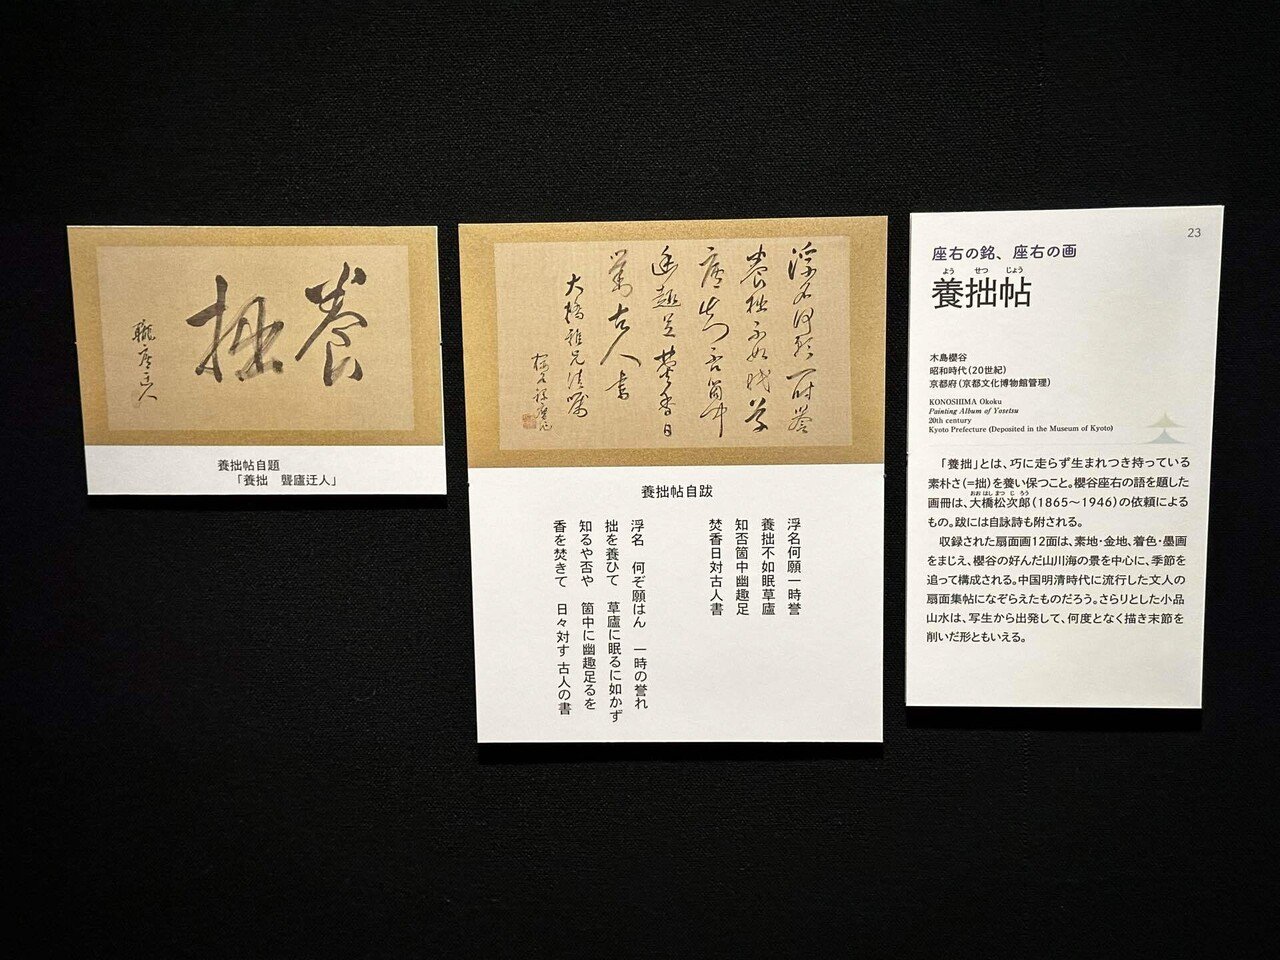 養拙
聾廬迂人
養拙帖自題
「養拙　聾廬迂人」
浮名何願一時誉
養拙不如眠草
廬知否箇中
幽趣足焚香日
対古人書
大橋雅兄清嘱
養拙帖自跋
浮名何願一時誉
養拙不如眠草廬
知否箇中幽趣足
焚香日対古人書
浮名　何ぞ願はん　一時の誉れ
拙を養ひて　草廬に眠るに如かず
知るや否や　箇中に幽趣足るを
香を焚きて　日々対す 古人の書
23
座右の銘、座右の画
よう せつ じょう
養拙帖
木島櫻谷
昭和時代(20世紀)
京都府(京都文化博物館管理)
KONOSHIMA Okoku
Painting Album of Yosetsu
20th century
Kyoto Prefecture (Deposited in the Museum of Kyoto)
「養拙」とは、巧に走らず生まれつき持っている
素朴さ(=拙)を養い保つこと。櫻谷座右の語を題した
おお はし まつ じ ろう
画冊は、大橋松次郎(1865～1946)の依頼による
もの。跋には自詠詩も附される。
収録された扇面画12面は、素地・金地、着色・墨画
をまじえ、櫻谷の好んだ山川海の景を中心に、季節を
追って構成される。中国明清時代に流行した文人の
扇面集帖になぞらえたものだろう。さらりとした小品
山水は、写生から出発して、何度となく描き末節を
削いだ形ともいえる。